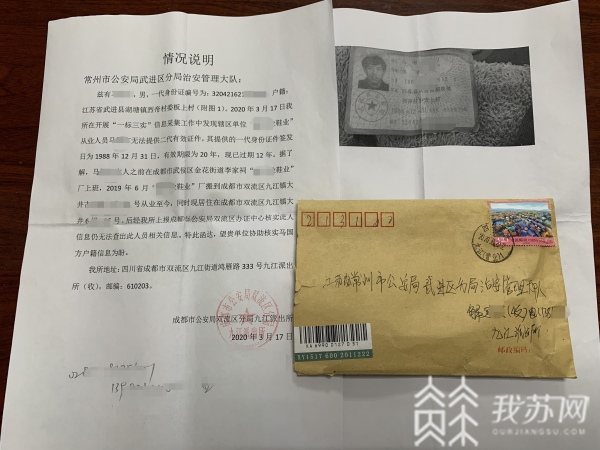 情况说明
常州市公安局武进区分局治安管理大队：
兹有，男，一代身份证编号为：32042162，户籍：
江苏省武进县湖塘镇，2020 年 3 月 17 日我
所在开展“一标三实”信息采集工作中发现辖区单位“鞋业”
从业人员马无法提供二代有效证件，其提供的一代身份证件签发
日为 1988 年 12 月 31 日，有效期限为 20 年，现已过期 12 年。据了
解，马人之前在成都市武侯区金花街道李家祠“
厂上班，2019 年 6 月“鞋业”厂搬到成都市双流区九江镇大
井号从业至今，同时现居住在成都市双流区九江镇大
井号，后经我所上报成都市公安局双流区办证中心核实此人
信息仍无法查出此人员相关信息。特此函达，望贵单位协助核实马国
方户籍信息为盼。
我所地址：四川省成都市双流区九江街道鸿雁路 333 号九江派出
所（收），邮编：610203。
成都市公安局双流区分局九江派出所
2020 年 3 月 17 日
213167
江苏省常州市公安局武进分局治安管理大队
九江派出所
邮政编码：
我苏网
OURJIANGSU.COM